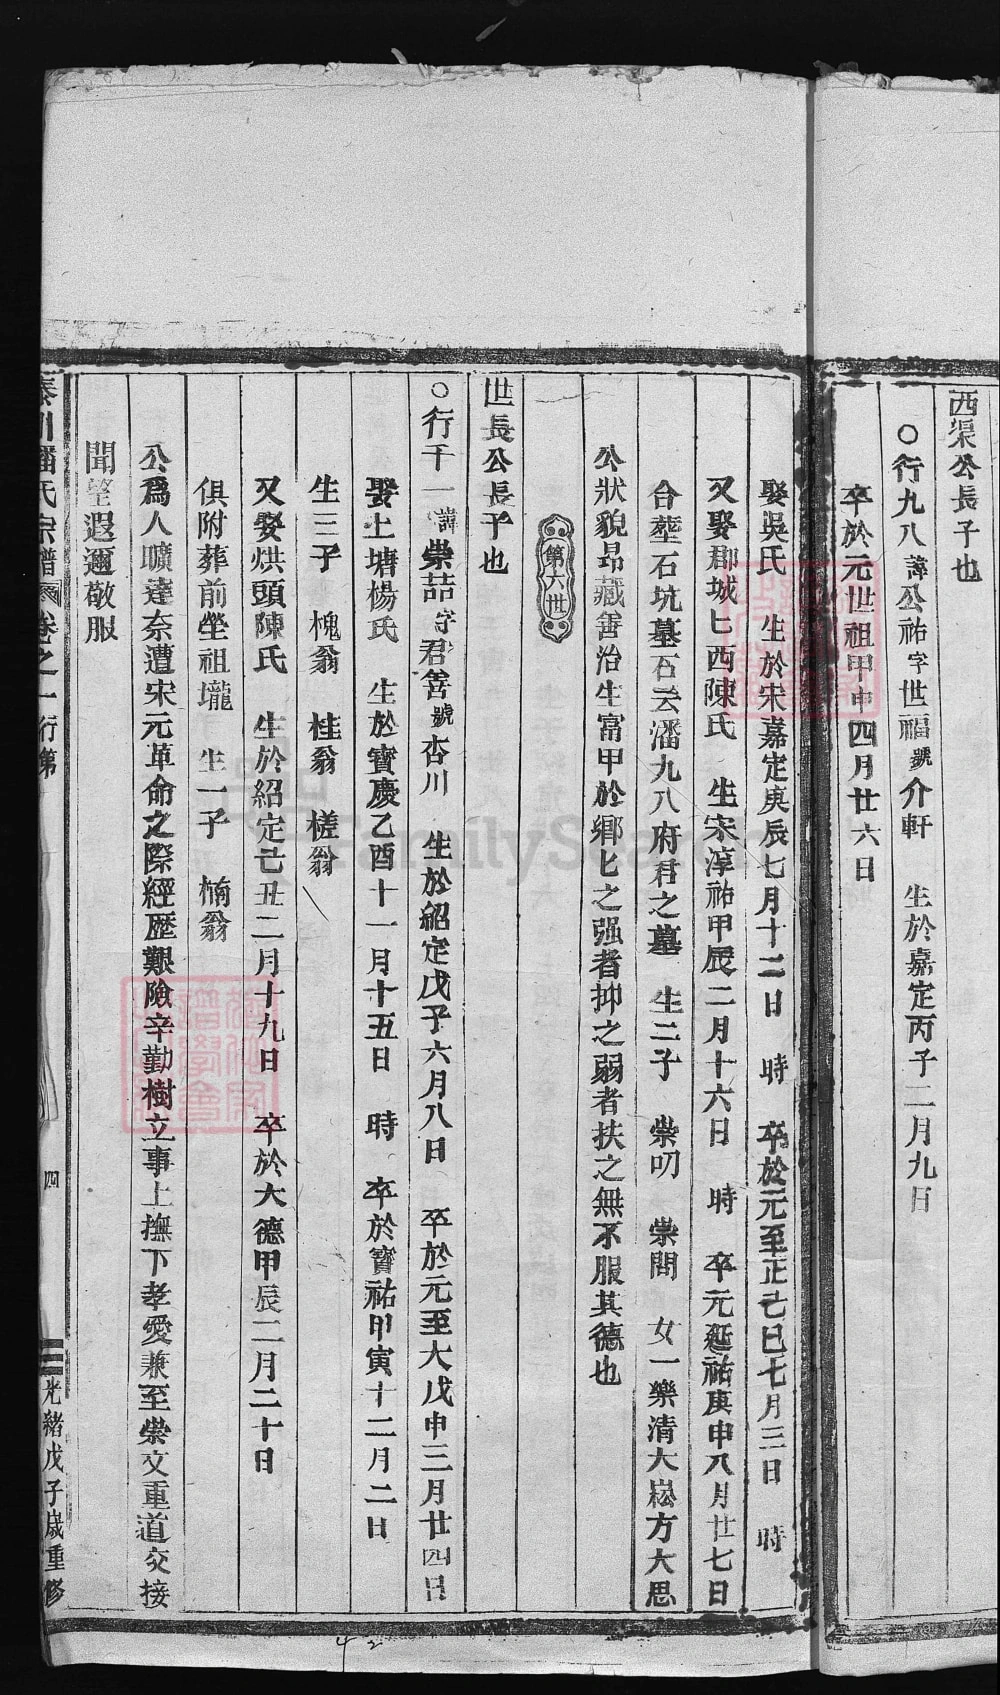 西渠公長子也
○行九八諱公祐字世福號介軒 生於嘉定丙子二月九日
卒於元世祖甲申四月廿六日
娶吳氏 生於宋嘉定庚辰七月十二日 時 卒於元至正己巳七月三日 時
又娶郡城匕西陳氏 生宋淳祐甲辰二月十六日 時 卒元延祐庚申八月廿七日
合塟石坑墓石云潘九八府君之墓 生二子 崇叨 崇閭 女一樂清大崧方大思
公狀貌昂藏善治生富甲於鄉匕之强者抑之弱者扶之無不服其德也
第六世
世長公長子也
○行千一諱崇喆字君善號杏川 生於紹定戊子六月八日 卒於元至大戊申三月廿四日
娶上塘楊氏 生於寶慶乙酉十一月十五日 時 卒於寶祐甲寅十二月二日
生三子 槐翁 桂翁 槎翁
又娶烘頭陳氏 生於紹定己丑二月十九日 卒於大德甲辰二月二十日
俱附葬前垒祖壠 生一子 楠翁
公爲人曠達奈遭宋元革命之際經歷艱險辛勤樹立事上撫下孝愛兼至崇文重道交接
聞望遐邇敬服
秦川潘氏宗譜 卷之一行第 四 光緒戊子歲重修
42
FamilySearch